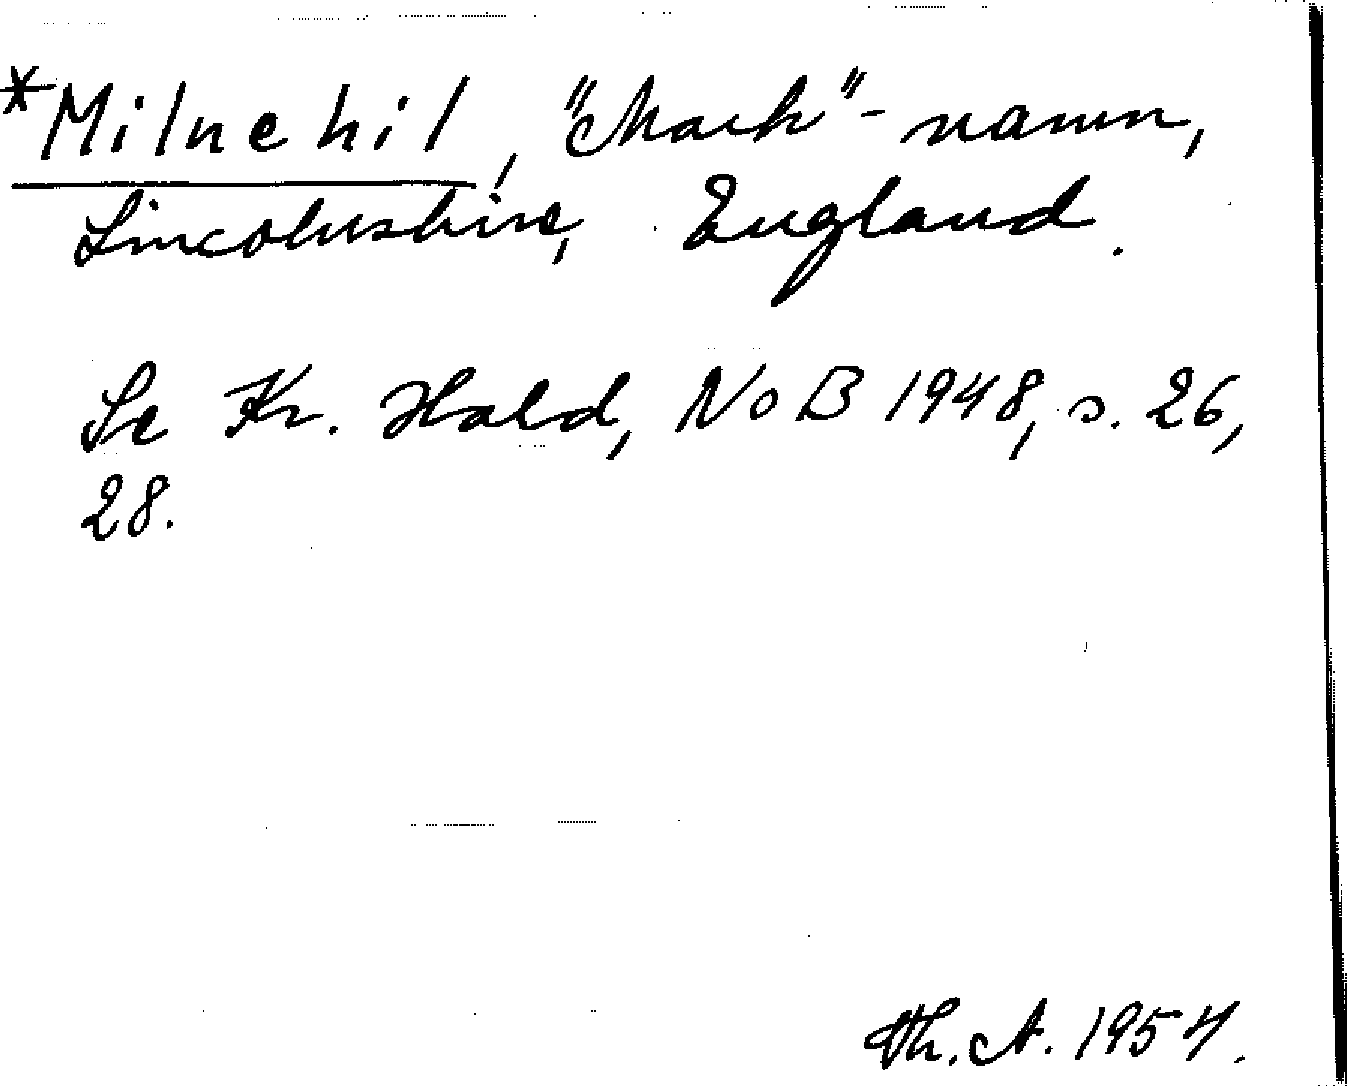 *Milnehil, "Mark"-namn,
Lincolnshire, England.
Se Kr. Hald, NoB 1948, s. 26,
28.
Th. A. 1954.